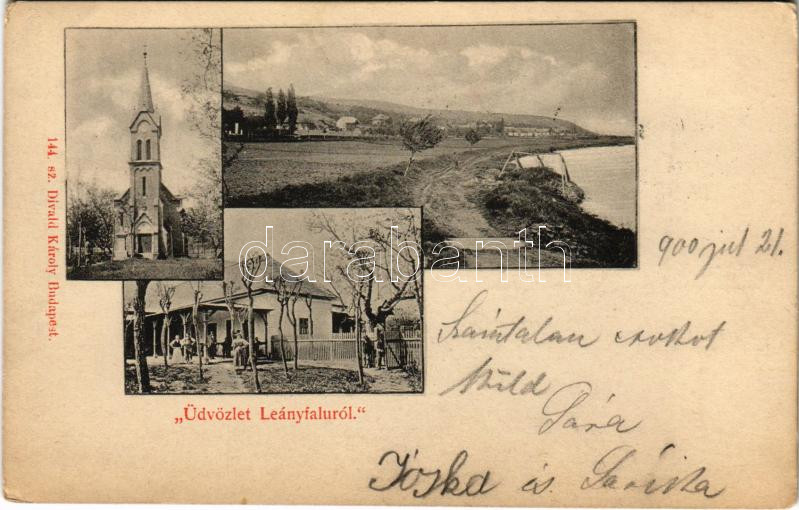 144. sz. Divald Károly Budapest.
darabanth
„Üdvözlet Leányfaluról.“
900 jul 21.
Számtalan csokot
küld
Sára
Jóska és Sárika